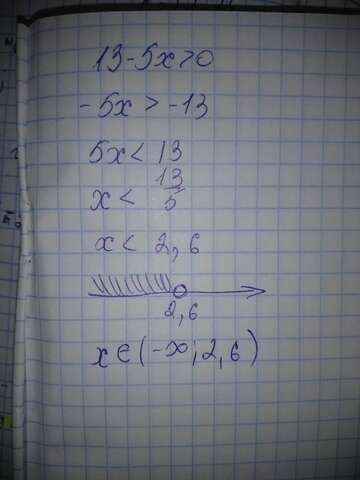 13-5x>0
-5x > -13
5x < 13
x < 13/5
x < 2,6
2,6
x∈(-∞;2,6)